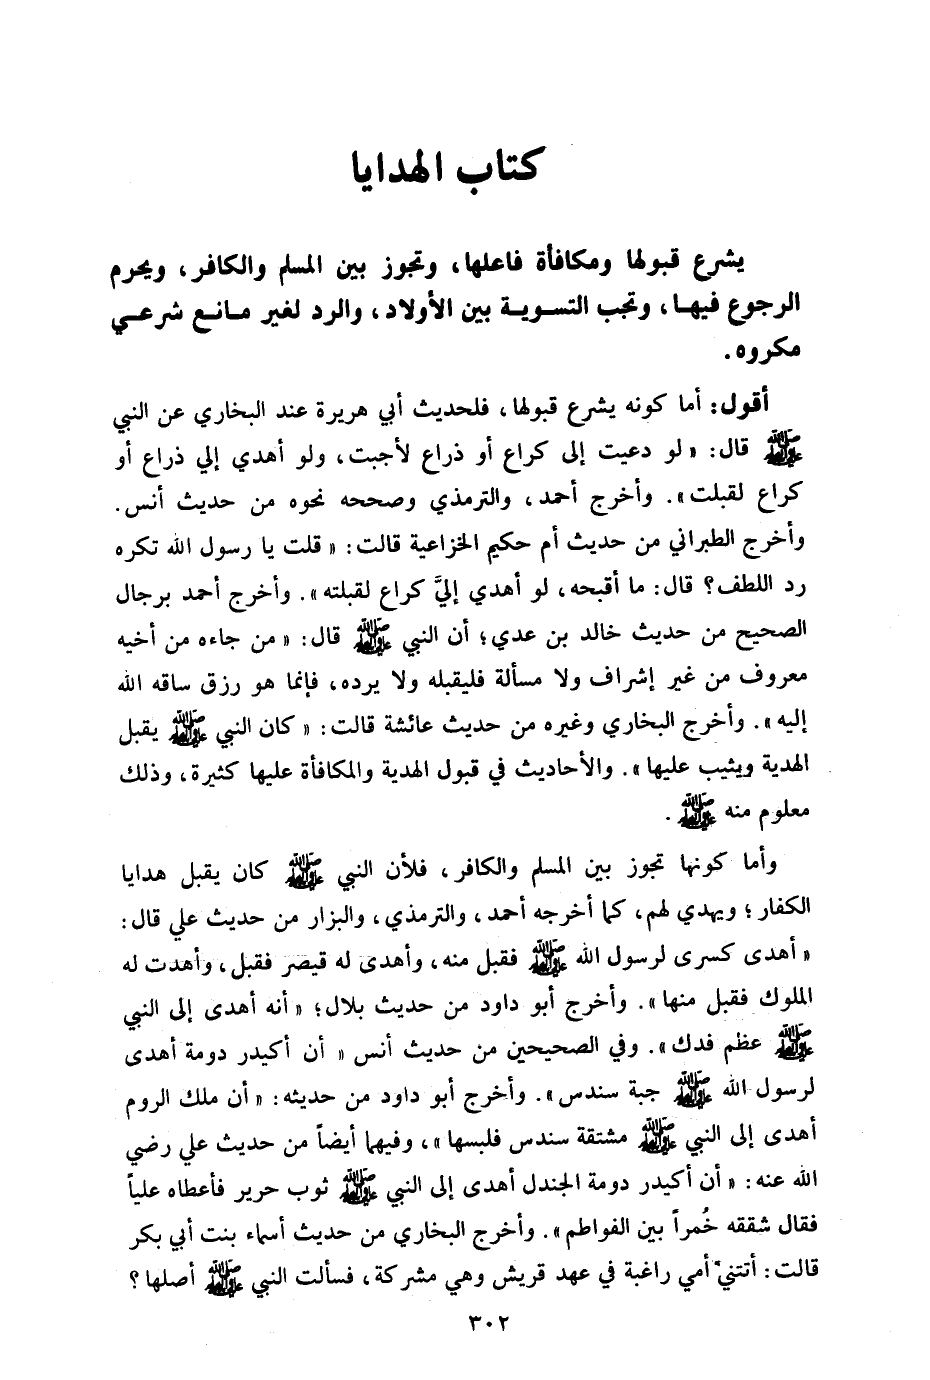 كتاب الهدايا
يشرع قبولها ومكافأة فاعلها، وتجوز بين المسلم والكافر، ويحرم
الرجوع فيها، وتجب التسوية بين الأولاد، والرد لغير مانع شرعي
مكروه.
أقول: أما كونه يشرع قبولها، فلحديث أبي هريرة عند البخاري عن النبي
ﷺ قال: « لو دعيت إلى كراع أو ذراع لأجبت، ولو أهدي إلي ذراع أو
كراع لقبلت». وأخرج أحمد، والترمذي وصححه نحوه من حديث أنس.
وأخرج الطبراني من حديث أم حكيم الخزاعية قالت: « قلت يا رسول الله تكره
رد اللطف؟ قال: ما أقبحه، لو أهدي إليَّ كراع لقبلته». وأخرج أحمد برجال
الصحيح من حديث خالد بن عدي؛ أن النبي ﷺ قال: « من جاءه من أخيه
معروف من غير إشراف ولا مسألة فليقبله ولا يرده، فإنما هو رزق ساقه الله
إليه». وأخرج البخاري وغيره من حديث عائشة قالت: « كان النبي ﷺ يقبل
الهدية ويثيب عليها». والأحاديث في قبول الهدية والمكافأة عليها كثيرة، وذلك
معلوم منه ﷺ.
وأما كونها تجوز بين المسلم والكافر، فلأن النبي ﷺ كان يقبل هدايا
الكفار؛ ويهدي لهم، كما أخرجه أحمد، والترمذي، والبزار من حديث علي قال:
« أهدى كسرى لرسول الله ﷺ فقبل منه، وأهدى له قيصر فقبل، وأهدت له
الملوك فقبل منها». وأخرج أبو داود من حديث بلال؛ « أنه أهدى إلى النبي
ﷺ عظم فدك». وفي الصحيحين من حديث أنس « أن أكيدر دومة أهدى
لرسول الله ﷺ جبة سندس». وأخرج أبو داود من حديثه: « أن ملك الروم
أهدى إلى النبي ﷺ مشتقة سندس فلبسها»، وفيهما أيضاً من حديث علي رضي
الله عنه: « أن أكيدر دومة الجندل أهدى إلى النبي ﷺ ثوب حرير فأعطاه علياً
فقال شققه خُمراً بين الفواطم». وأخرج البخاري من حديث أسماء بنت أبي بكر
قالت: أتتني أمي راغبة في عهد قريش وهي مشركة، فسألت النبي ﷺ أصلها؟
٣٠٢